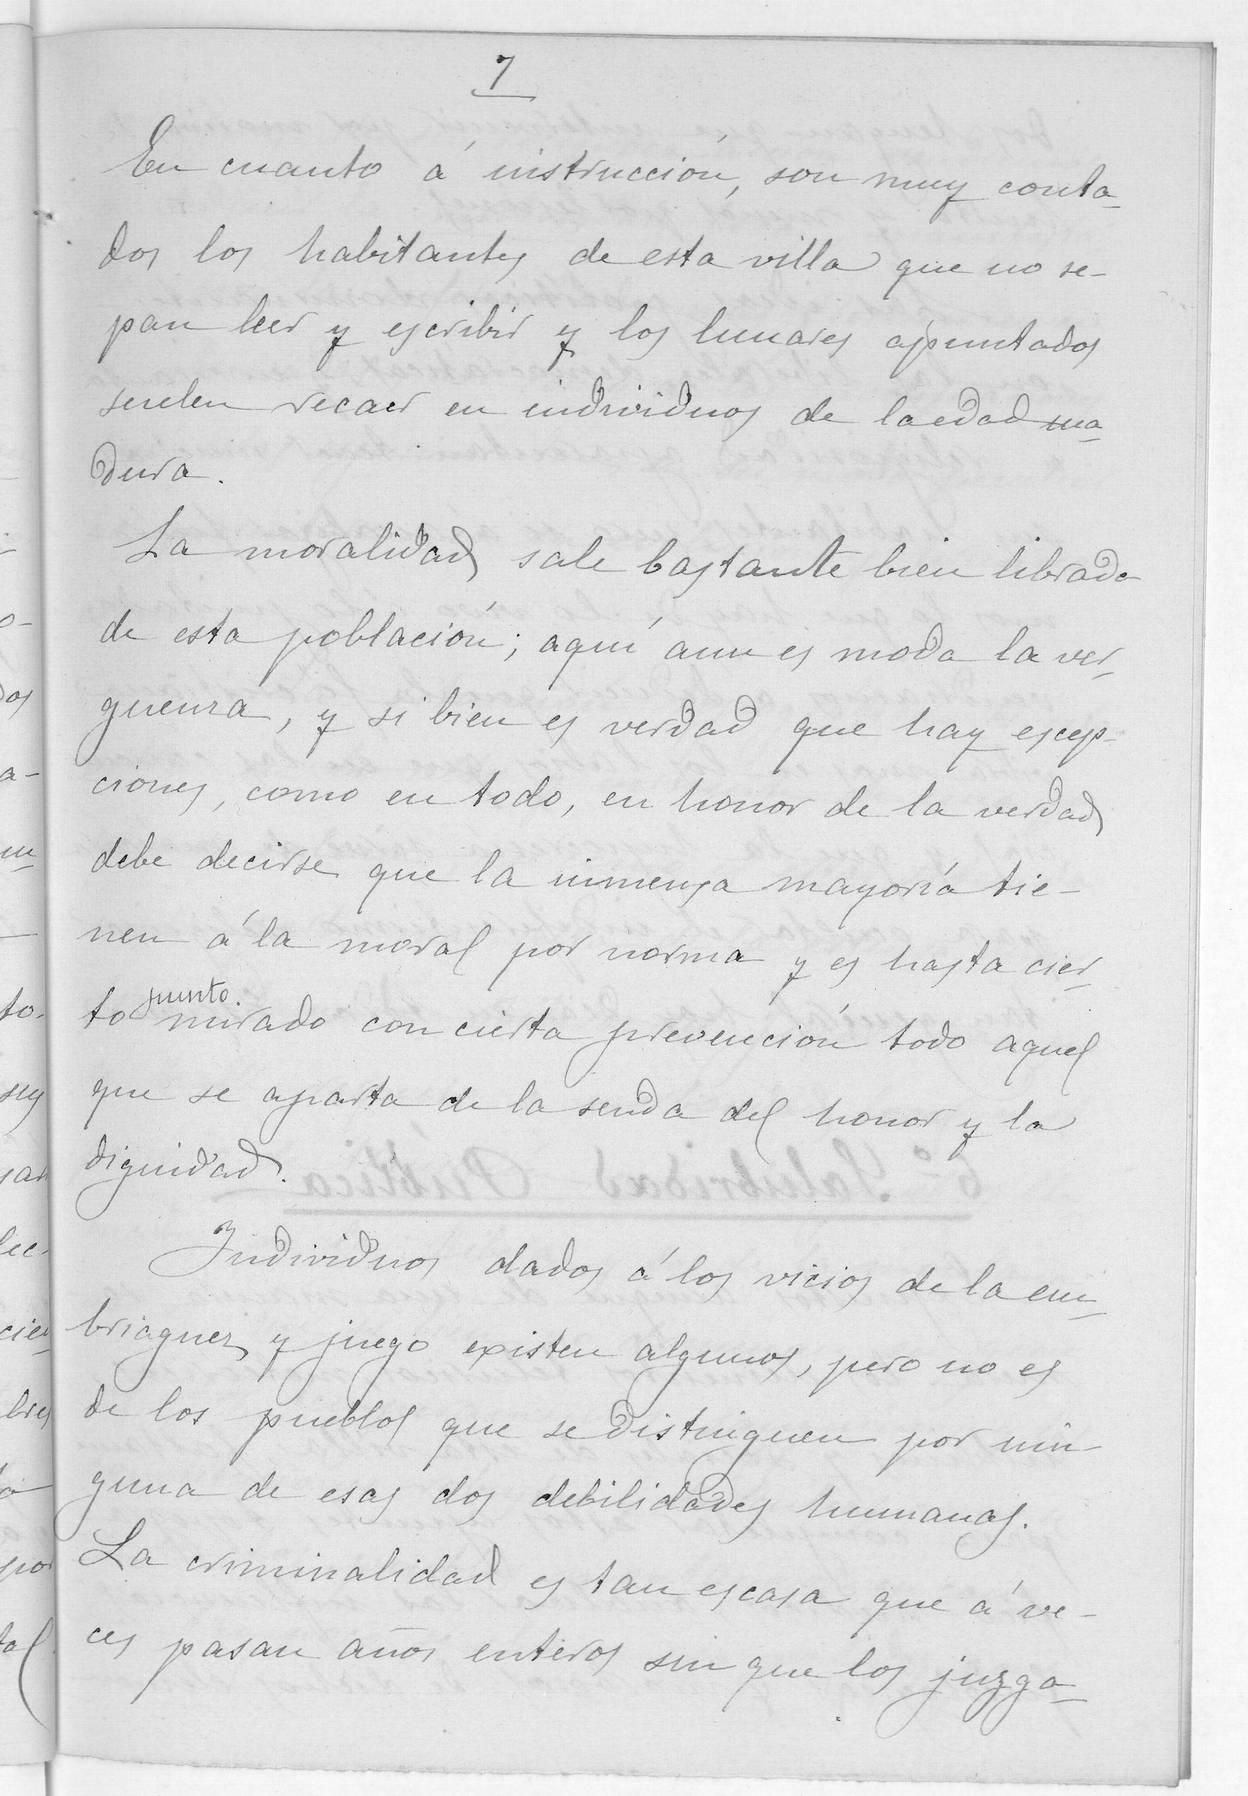 7
En cuanto á instrucción, son muy conta-
dos los habitantes de esta villa que no se-
pan leer y escribir y los lunares apuntados
suelen recaer en individuos de la edad ma-
dura.
La moralidad sale bastante bien librada
de esta población; aquí aun es moda la ver-
guenza, y si bien es verdad que hay escep-
ciones, como en todo, en honor de la verdad
debe decirse que la inmensa mayoría tie-
nen á la moral por norma y es hasta cier-
to punto mirado con cierta prevención todo aquel
que se aparta de la senda del honor y la
dignidad.
Individuos dados á los vicios de la em-
briaguez y juego existen algunos, pero no es
de los pueblos que se distinguen por nin-
guna de esas dos debilidades humanas.
La criminalidad es tan escasa que á ve-
ces pasan años enteros sin que los juzga-